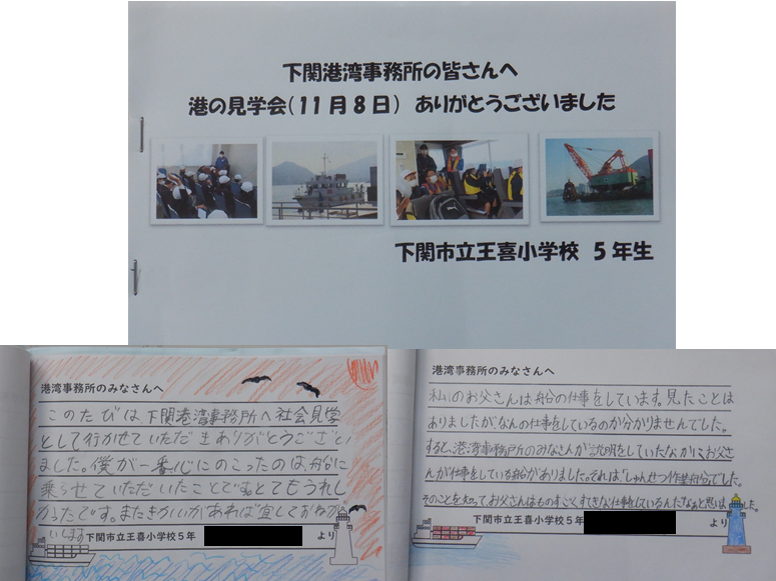 下関港湾事務所の皆さんへ
港の見学会(11月8日) ありがとうございました
下関市立王喜小学校 5年生
港湾事務所のみなさんへ
このたびは下関港湾事務所へ社会見学
として行かせていただきありがとうござい
ました。僕が一番心にのこったのは船に
乗らせていただいたことです。とてもうれし
かったです。またきかいがあれば宜しくおねが
いします
下関市立王喜小学校5年
より
港湾事務所のみなさんへ
私のお父さんは船の仕事をしています。見たことは
ありましたがなんの仕事をしているのか分かりませんでした。
すると、港湾事務所のみなさんが説明をしていたなかに、お父さ
んが仕事をしている船がありました。それは「しゅんせつ作業船」でした。
そのことを知って、お父さんはものすごくすてきな仕事をしているんだなぁと思いました。
下関市立王喜小学校5年
より